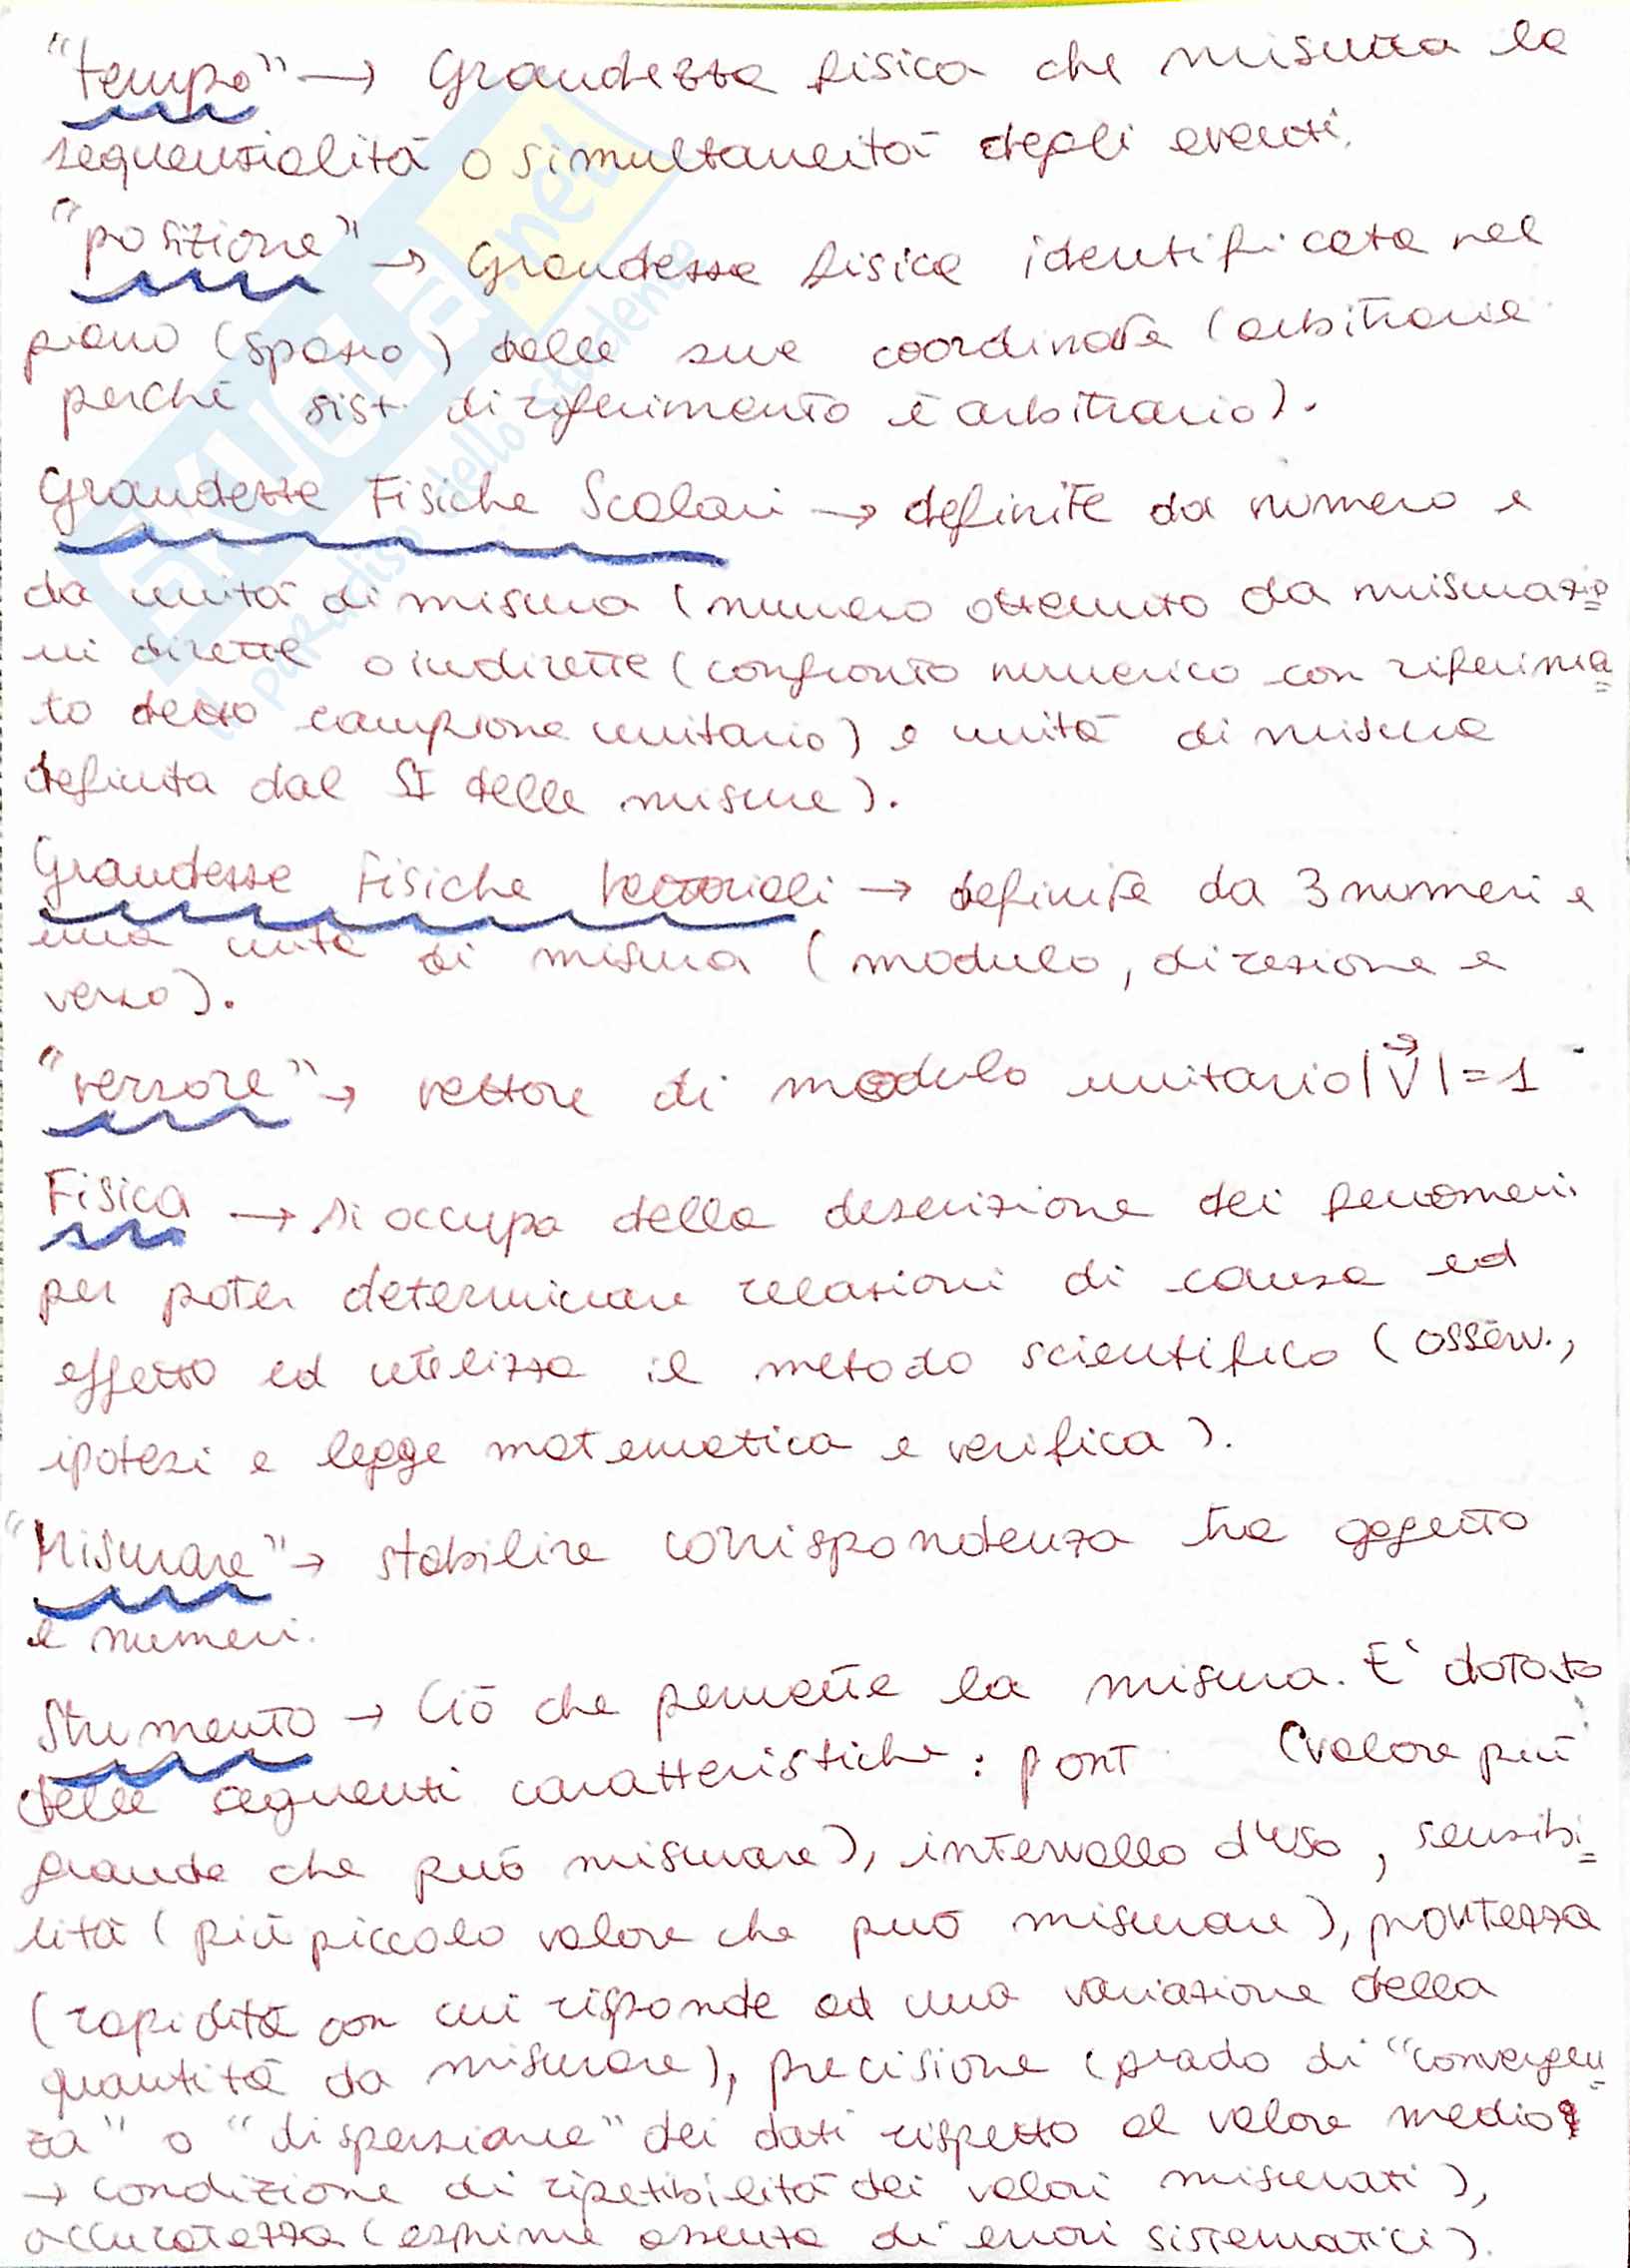 "tempo" → Grandezza fisica che misura la
sequenzialità o simultaneità degli eventi.
"posizione" → Grandezza fisica identificata nel
piano (spazio) dalle sue coordinate (arbitrarie
perché sist. di riferimento è arbitrario).
Grandezze Fisiche Scalari → definite da numero e
da unità di misura (numero ottenuto da misurazio=
ni dirette o indirette (confronto numerico con riferime
to detto campione unitario) e unità di misura
definita dal SI delle misure).
Grandezze Fisiche Vettoriali → definite da 3 numeri e
una unità di misura (modulo, direzione e
verso).
"versore" → vettore di modulo unitario |V⃗| = 1
Fisica → si occupa della descrizione dei fenomeni
per poter determinare relazioni di causa ed
effetto ed utilizza il metodo scientifico (osserv.,
ipotesi e legge matematica e verifica).
"Misurare" → stabilire corrispondenza tra oggetto
e numeri.
Strumento → Ciò che permette la misura. E' dotato
delle seguenti caratteristiche: port (valore più
grande che può misurare), intervallo d'uso, sensibi=
lità (più piccolo valore che può misurare), prontezza
(rapidità con cui risponde ad una variazione della
quantità da misurare), precisione (grado di "convergen=
za" o "dispersione" dei dati rispetto al valore medio
→ condizione di ripetibilità dei valori misurati),
accuratezza (esprime assenza di errori sistematici).
SKUOLA.net
il paradiso dello studente